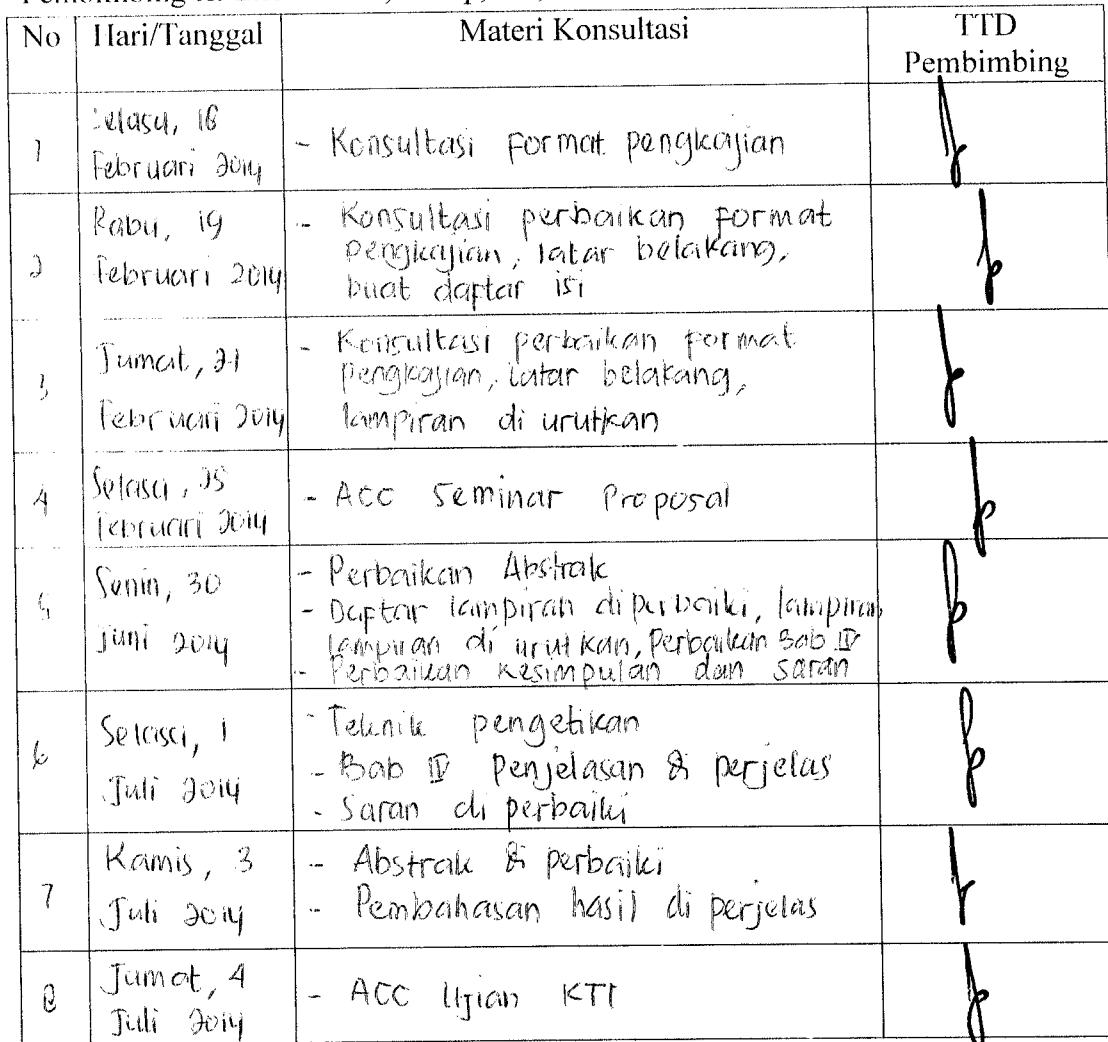 Pembimbing
No Hari/Tanggal Materi Konsultasi TTD
Pembimbing
1 Selasa, 18
Februari 2014
- Konsultasi format pengkajian
2 Rabu, 19
Februari 2014
- Konsultasi perbaikan format
pengkajian, latar belakang,
buat daftar isi
3 Jumat, 21
Februari 2014
- Konsultasi perbaikan format
pengkajian, latar belakang,
lampiran di urutkan
4 Selasa, 25
Februari 2014
- ACC Seminar Proposal
5 Senin, 30
Juni 2014
- Perbaikan Abstrak
- Daftar lampiran diperbaiki, lampiran
lampiran di urutkan, Perbaikan Bab IV
- Perbaikan Kesimpulan dan saran
6 Selasa, 1
Juli 2014
- Teknik pengetikan
- Bab IV Penjelasan di perjelas
- Saran di perbaiki
7 Kamis, 3
Juli 2014
- Abstrak di perbaiki
- Pembahasan hasil di perjelas
8 Jumat, 4
Juli 2014
- ACC Ujian KTI